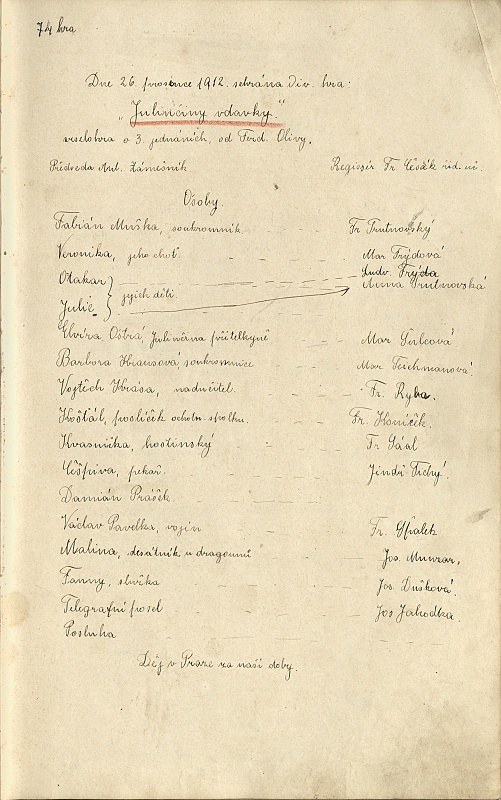 74 hra
Dne 26. prosince 1912 sehrána div. hra:
„Julinčiny vdavky."
veselohra o 3. jednáních, od Ferd. Olivy.
Předseda Ant. Zámečník Regissér Fr. Češák říd. uč.
Osoby.
Fabián Muška, soukromník Fr Trutnovský
Veronika, jeho choť Mar Frýdová
Otakar Ludv. Frýda
jejich děti Anna Trutnovská
Julič
Elvíra Ostrá, Julinčina přítelkyně Mar Šulcová
Barbora Krausová, soukromnice Mar Teichmanová
Vojtěch Krása, nadučitel Fr. Ryba.
Košťál, poslíček ochotn. spolku Fr. Koníček.
Kvasnička, hostinský Fr Gáal
Čěšpiva, pekař Jindř Tichý.
Damián Prášek
Václav Pavelka, vojín Fr.
Malina, desátník u dragounů Jos. Munzar,
Fanny, služka Jos. Dušková.
Telegrafní posel Jos Jahodka.
Posluha
Děj v Praze za naší doby.